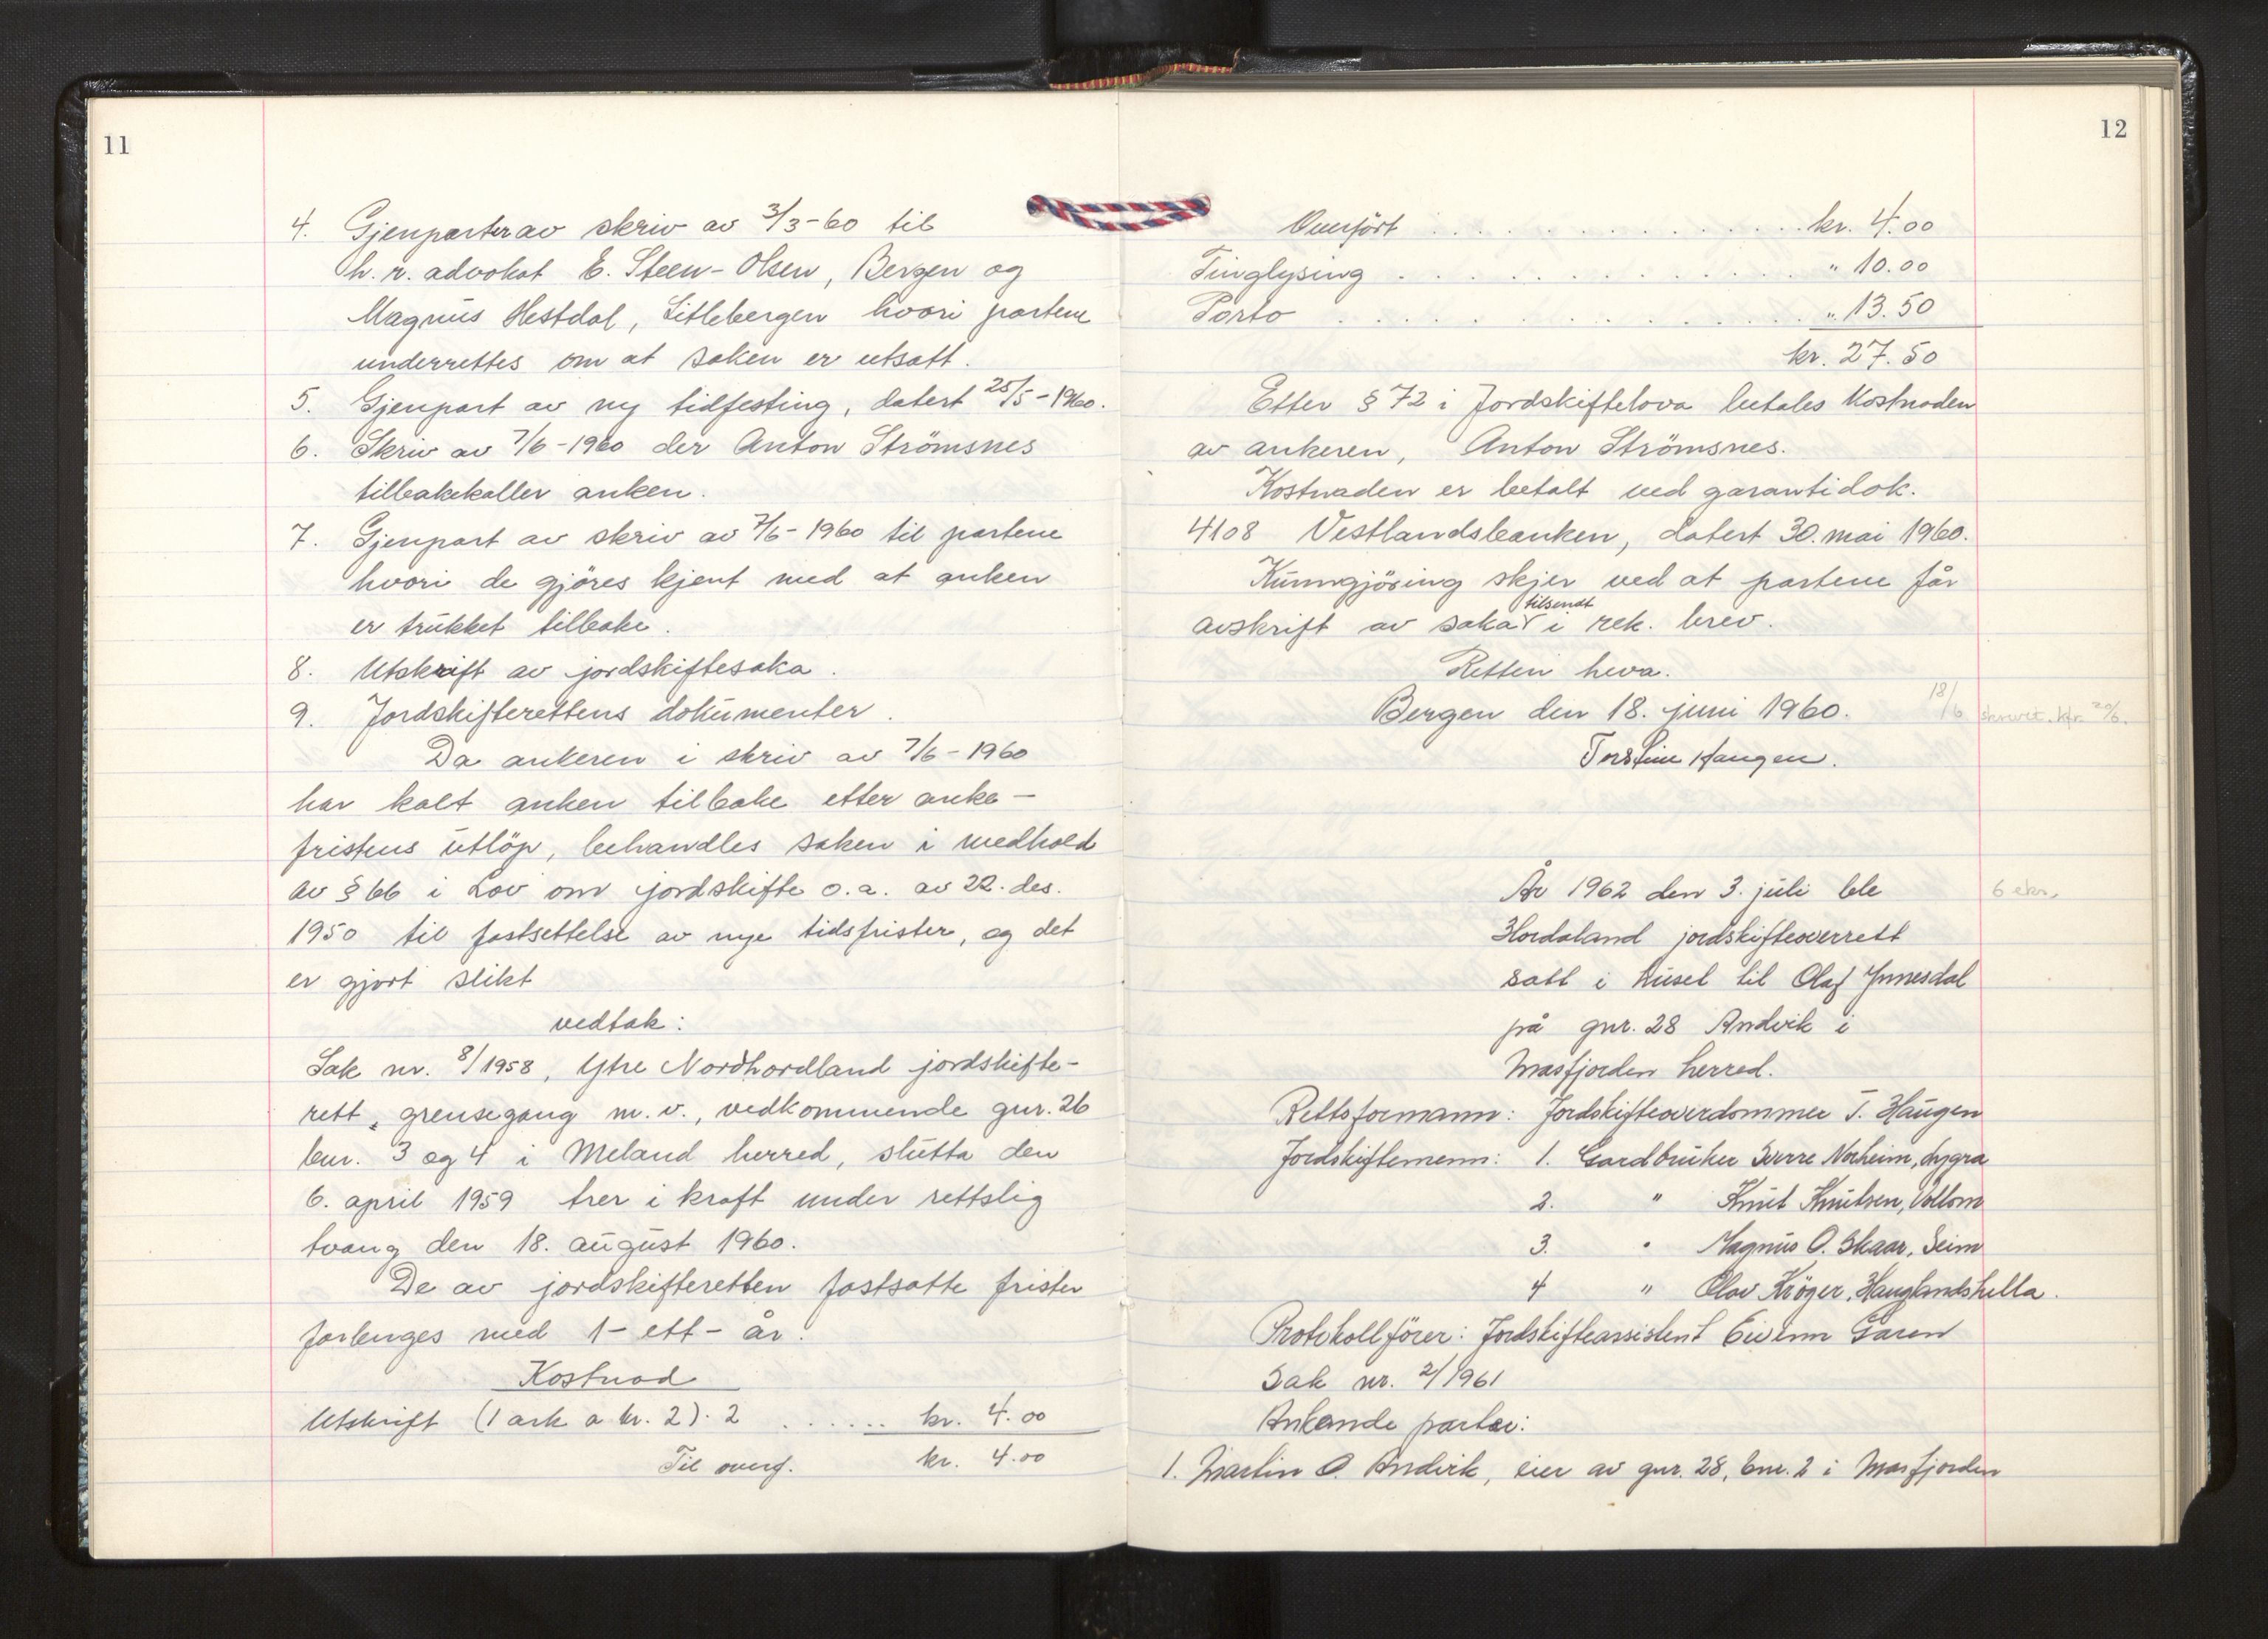 11
4. Gjenparter av skriv av 3/3-60 til
h.r. advokat E. Steen-Olsen, Bergen og
Magnus Hestdal, Litlebergen hvori partene
underrettes om at saken er utsatt.
5. Gjenpart av ny tidfesting, datert 25/5-1960.
6. Skriv av 7/6-1960 der Anton Strömsnes
tilbakekaller anken.
7. Gjenpart av skriv av 7/6-1960 til partene
hvori de gjöres kjent med at anken
er trukket tilbake.
8. Utskrift av jordskiftesaka.
9. Jordskifterettens dokumenter.
Da ankeren i skriv av 7/6-1960
har kalt anken tilbake etter anke-
fristens utlöp, behandles saken i medhold
av § 66 i Lov om jordskifte o.a. av 22. des.
1950 til fastsettelse av nye tidsfrister, og det
er gjort slikt
vedtak:
Sak nr. 8/1958, Ytre Nordhordland jordskifte-
rett, grensegang m.v., vedkommende gnr. 26
bnr. 3 og 4 i Meland herred, slutta den
6. april 1959 trer i kraft under rettslig
tvang den 18. august 1960.
De av jordskifteretten fastsatte frister
forlenges med 1-ett-år.
Kostnad
Utskrift (1 ark a kr. 2)·2 ...... kr. 4.00
Til overf. kr. 4.00
12
Overfört ............ kr. 4.00
Tinglysing ............ " 10.00
Porto ............ " 13.50
kr. 27.50
Etter § 72 i Jordskiftelova betales kostnaden
av ankeren, Anton Strömsnes.
Kostnaden er betalt ved garantidok.
4108 Vestlandsbanken, datert 30. mai 1960.
Kunngjöring skjer ved at partene får
tilsendt
avskrift av saka i rek. brev.
Retten heva.
Bergen den 18. juni 1960. 18/6
Torstein Haugen.
År 1962 den 3. juli ble 6 eks.
Hordaland jordskifteoverrett
satt i huset til Olaf Ynnesdal
på gnr. 28 Andvik i
Masfjorden herred.
Rettsformann: Jordskifteoverdommer T. Haugen
Jordskiftemenn: 1. Gardbruker Sverre Norheim, Lygra
2. " Knut Knutsen, Vollom
3. " Magnus O. Skaar, Seim
4 " Olav Kröger, Hauglandshella.
Protokollförer: Jordskifteassistent Eivinn Garen
Sak nr. 2/1961
Ankande partar:
1. Martin O. Andvik, eier av gnr. 28, bnr. 2 i Masfjorden